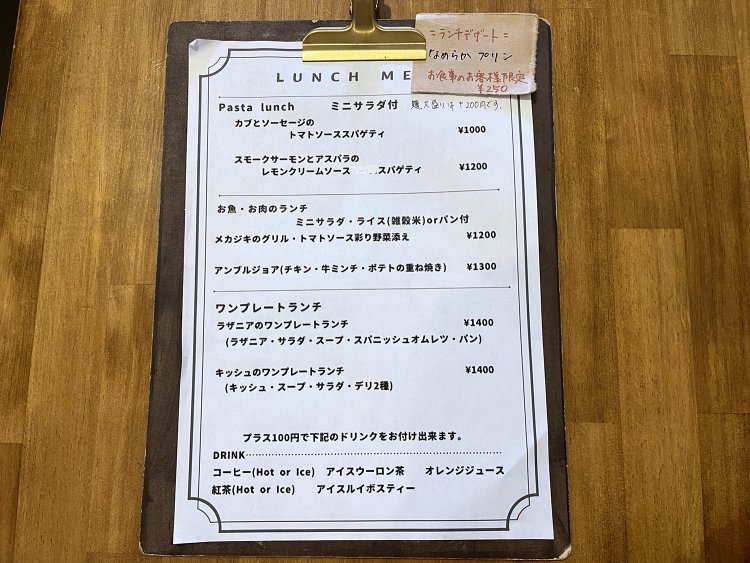 =ランチデザート=
なめらかプリン
お食事のお客様限定
¥250
LUNCH ME
Pasta lunch ミニサラダ付 麺大盛りは+200円です。
カブとソーセージの
トマトソーススパゲティ ¥1000
スモークサーモンとアスパラの
レモンクリームソース スパゲティ ¥1200
お魚・お肉のランチ
ミニサラダ・ライス(雑穀米)orパン付
メカジキのグリル・トマトソース彩り野菜添え ¥1200
アンブルジョア(チキン・牛ミンチ・ポテトの重ね焼き) ¥1300
ワンプレートランチ
ラザニアのワンプレートランチ ¥1400
(ラザニア・サラダ・スープ・スパニッシュオムレツ・パン)
キッシュのワンプレートランチ ¥1400
(キッシュ・スープ・サラダ・デリ2種)
プラス100円で下記のドリンクをお付け出来ます。
DRINK
コーヒー(Hot or Ice) アイスウーロン茶 オレンジジュース
紅茶(Hot or Ice) アイスルイボスティー